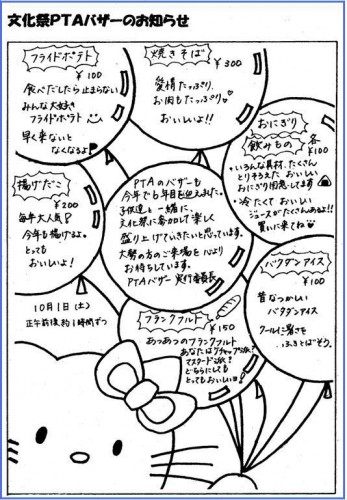 文化祭PTAバザーのお知らせ
フライドポテト
¥100
食べだしたら止まらない
みんな大好き
フライドポテト
早く来ないと
なくなるよ
焼きそば
¥300
愛情たっぷり、
お肉もたっぷり
おいしいよ!!
おにぎり
飲みもの
各
¥100
・いろんな具材、たくさん
とりそろえた おいしい
おにぎり用意してます
・冷たくて おいしい
ジュースがたくさんあるよ!!
買いに来てね
揚げだこ
¥200
毎年大人気
今年も揚げるよ。
とっても
おいしいよ!
PTAのバザーも
今年で6年目を迎えました。
子供達と一緒に、
文化祭に参加して楽しく
盛り上げていきたいと思っています。
大勢の方のご来場を心より
お待ちしています。
PTAバザー 実行委員長
バクダンアイス
¥100
昔なつかしい
バクダンアイス
クールに暑さを
ふきとばそう。
10月1日(土)
正午前後約1時間ずつ
フランクフルト
¥150
あつあつのフランクフルト
あなたはケチャップ派?
マスタード派?
どちらにしても
とってもおいしいヨ!